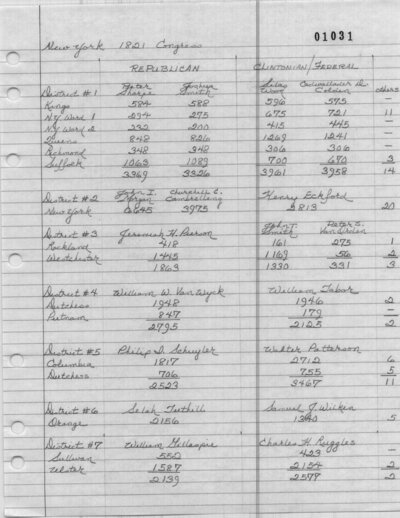 01031
New York 1821 Congress
REPUBLICAN CLINTONIAN/FEDERAL
District #1 Peter Sharpe Joshua Smith Silas Wood Cadwallader D. Colden others
Kings 584 588 596 575 —
N.Y. Ward 1 294 275 675 721 11
N.Y. Ward 2 232 200 415 445 —
Queens 848 826 1269 1241 —
Richmond 348 348 306 306 —
Suffolk 1063 1089 700 670 3
3369 3326 3961 3958 14
District #2 John J. Morgan Churchill C. Cambreleng Henry Eckford
New York 3975 3813 20
District #3 Jeremiah H. Pierson John T. Smith Peter S. Van Orden
Rockland 418 161 275 1
Westchester 1445 1169 56 2
1863 1330 331 3
District #4 William W. Van Wyck William Tabor
Dutchess 1948 1946 2
Putnam 847 179 —
2795 2125 2
District #5 Philip D. Schuyler Walter Patterson
Columbia 1817 2712 6
Dutchess 706 755 5
2523 3467 11
District #6 Selah Tuthill Samuel J. Wilkin
Orange 2156 5
District #7 William Gillespie Charles H. Ruggles
Sullivan 552 423 —
Ulster 1587 2154 2
2139 2577 2